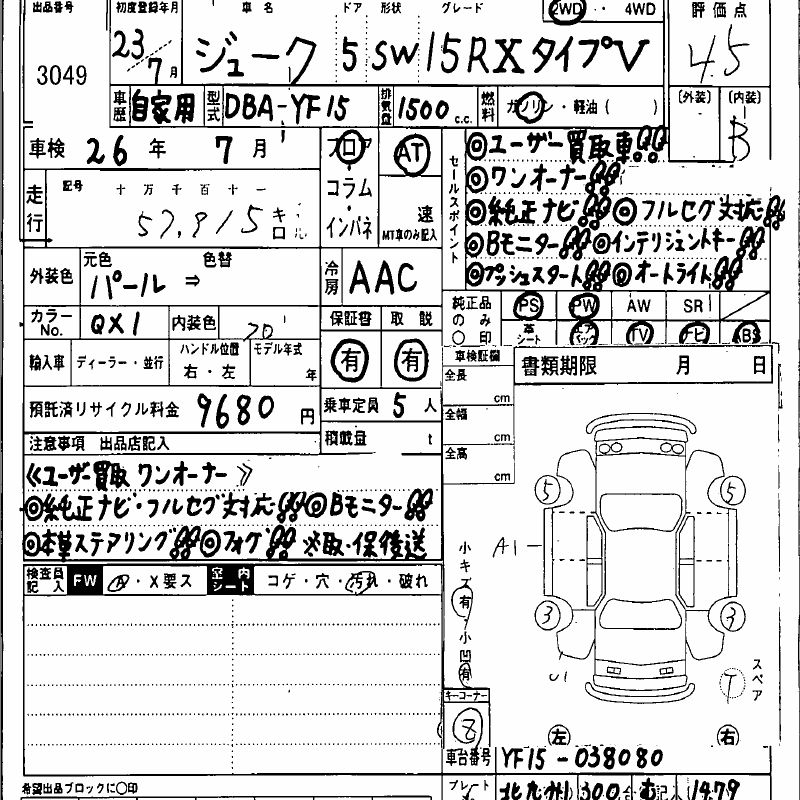 出品番号 初度登録年月 車名 ドア 形状 グレード 2WD ・ 4WD 評価点
3049 23 7月 ジューク 5 SW 15RX タイプV 4.5
車歴 自家用 型式 DBA-YF15 排気量 1500 c.c. 燃料 ガソリン・軽油 ( ) 〔外装〕 〔内装〕
B
車検 26年 7月 フロア AT
コラム
インパネ 速
MT車のみ記入
走行 記号 十万千百十一
57,915 キロ
セールスポイント
◎ユーザー買取車!!
◎ワンオーナー!!
◎純正ナビ!! ◎フルセグ対応!!
◎Bモニター!! ◎インテリジェントキー!!
◎プッシュスタート!! ◎オートライト!!
外装色 元色 パール ⇒ 色替 冷房 AAC
カラーNo. QX1 内装色 保証書 取説
有 有
純正品のみ〇印 PS PW AW SR
革シート エアバック TV ナビ
輸入車 ディーラー・並行 ハンドル位置 右・左 モデル年式 年
車検証欄 書類期限 月 日
全長 cm
全幅 cm
全高 cm
預託済リサイクル料金 9680 円 乗車定員 5 人
積載量 t
注意事項 出品店記入
《ユーザー買取 ワンオーナー》
◎純正ナビ・フルセグ対応!! ◎Bモニター!!
◎本革ステアリング!! ◎フォグ!! ※取・保後送
検査員記入 FW ・X要ス 室内シート コゲ・穴・汚れ・破れ
5 5
A1
小キズ 有 ・ 小凹 有
3 3
U1
T スペア
キーコーナー
左 右
車台番号 YF15-038080
希望出品ブロックに〇印 プレート 北九州 300 む 1479